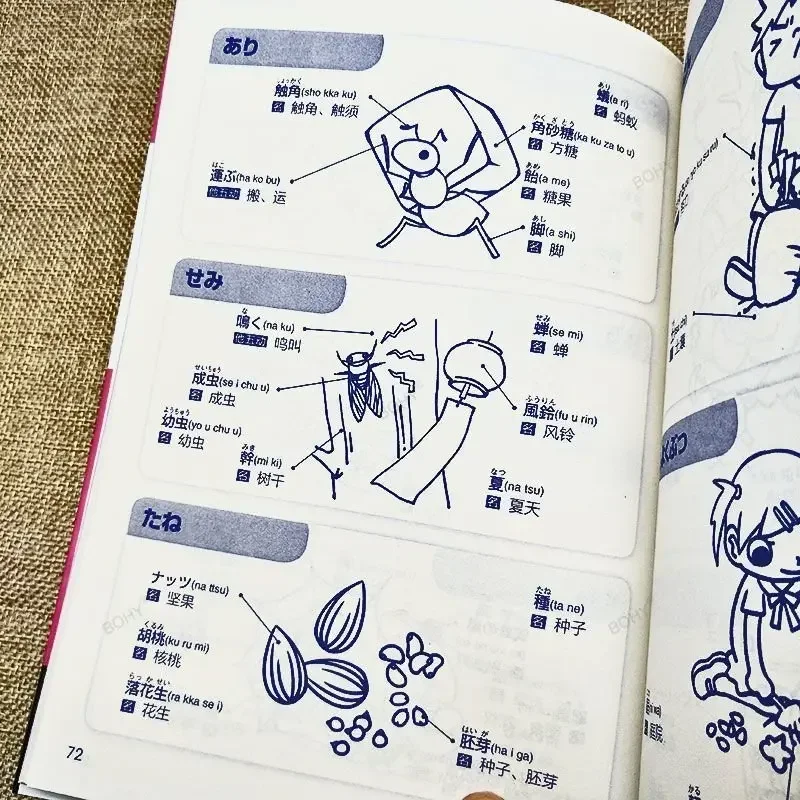 あり
しょっかく
触角(sho kka ku)
名 触角、触须
はこ
運ぶ(ha ko bu)
他五动 搬、运
あり
蟻(a ri)
名 蚂蚁
かくざとう
角砂糖(ka ku za to u)
名 方糖
あめ
飴(a me)
名 糖果
あし
脚(a shi)
名 脚
せみ
な
鳴く(na ku)
他五动 鸣叫
せいちゅう
成虫(se i chu u)
名 成虫
ようちゅう
幼虫(yo u chu u)
名 幼虫
みき
幹(mi ki)
名 树干
せみ
蝉(se mi)
名 蝉
ふうりん
風鈴(fu u rin)
名 风铃
なつ
夏(na tsu)
名 夏天
たね
ナッツ(na ttsu)
名 坚果
くるみ
胡桃(ku ru mi)
名 核桃
らっかせい
落花生(ra kka se i)
名 花生
たね
種(ta ne)
名 种子
はいが
胚芽(ha i ga)
名 种子、胚芽
72
BOHY
BOHY
BOHY